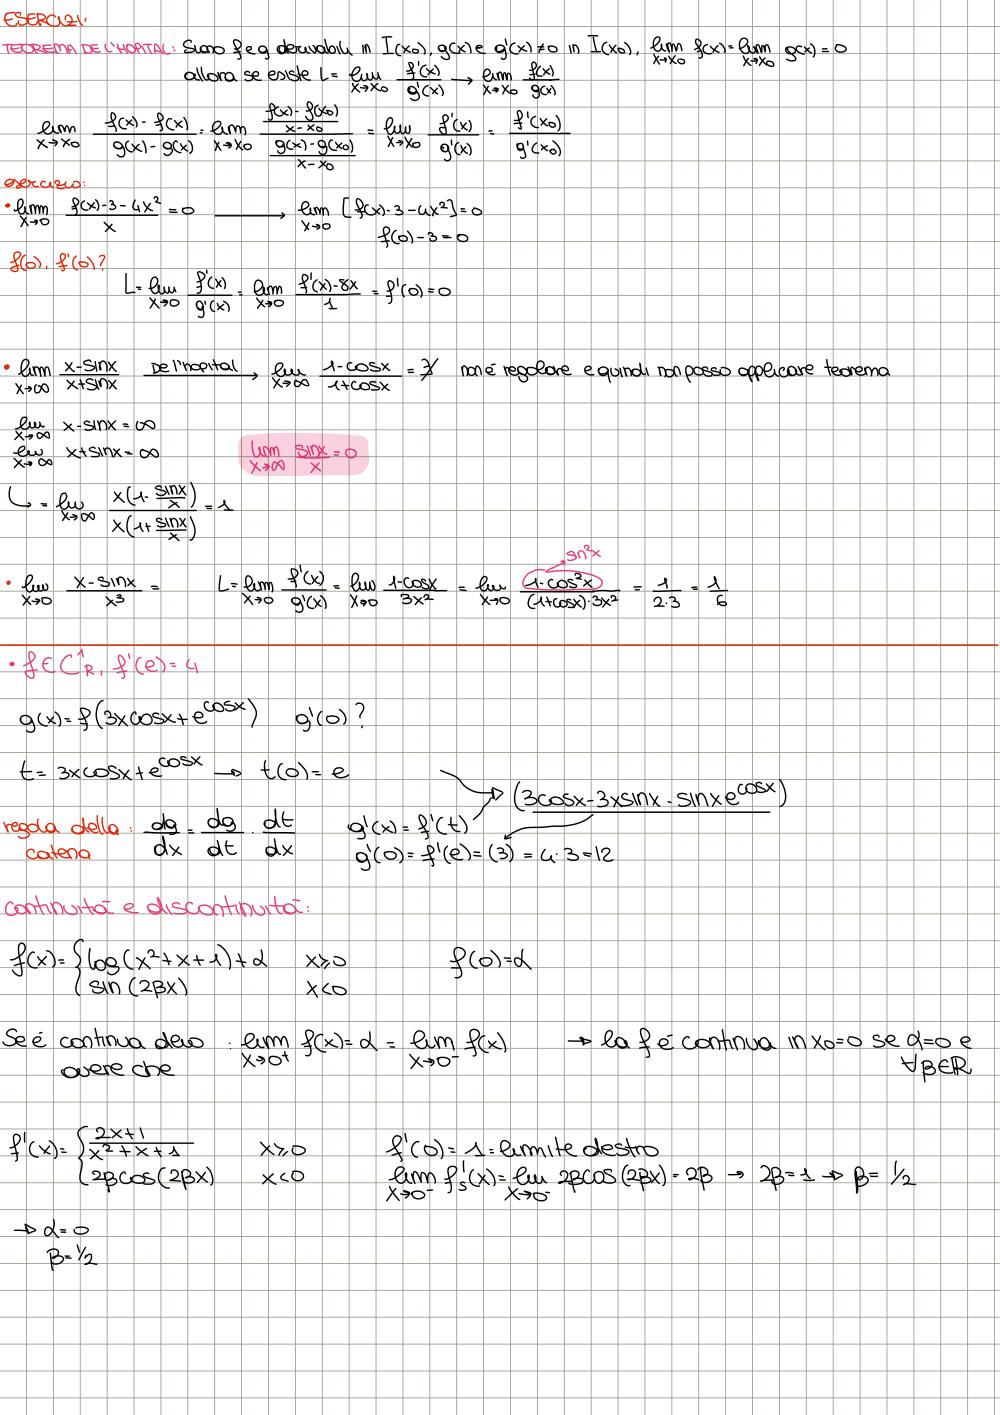 ESERCIZI:
TEOREMA DE L'HOPITAL: Siano f e g derivabili in I(x₀), g(x) e g'(x) ≠ 0 in I(x₀), lim x→x₀ f(x) = lim x→x₀ g(x) = 0
allora se esiste L = lim x→x₀ f'(x)/g'(x) → lim x→x₀ f(x)/g(x)
lim x→x₀ (f(x) - f(x))/(g(x) - g(x)) = lim x→x₀ ((f(x) - f(x₀))/(x - x₀))/((g(x) - g(x₀))/(x - x₀)) = lim x→x₀ f'(x)/g'(x) = f'(x₀)/g'(x₀)
esercizio:
• lim x→0 (f(x) - 3 - 4x²)/x = 0 → lim x→0 [f(x) - 3 - 4x²] = 0
f(0) - 3 = 0
f(0), f'(0)?
L = lim x→0 f'(x)/g'(x) = lim x→0 (f'(x) - 8x)/1 = f'(0) = 0
• lim x→∞ (x - sinx)/(x + sinx) De l'hopital → lim x→∞ (1 - cosx)/(1 + cosx) = ∄ non è regolare e quindi non posso applicare teorema
lim x→∞ x - sinx = ∞
lim x→∞ x + sinx = ∞
lim x→∞ sinx/x = 0
↳ = lim x→∞ x(1 - sinx/x)/x(1 + sinx/x) = 1
sin²x
• lim x→0 (x - sinx)/x³ = L = lim x→0 f'(x)/g'(x) = lim x→0 (1 - cosx)/3x² = lim x→0 (1 - cos²x)/((1 + cosx)·3x²) = 1/(2·3) = 1/6
• f ∈ C¹ℝ, f'(e) = 4
g(x) = f(3xcosx + e^cosx) g'(0)?
t = 3xcosx + e^cosx → t(0) = e
(3cosx - 3xsinx - sinx e^cosx)
regola della catena: dg/dx = dg/dt · dt/dx g'(x) = f'(t)
g'(0) = f'(e) = (3) = 4·3 = 12
continuità e discontinuità:
f(x) = { log(x² + x + 1) + α x ≥ 0 f(0) = α
sin(2βx) x < 0
Se è continua devo avere che: lim x→0⁺ f(x) = α = lim x→0⁻ f(x) → la f è continua in x₀ = 0 se α = 0 e
∀β∈ℝ
f'(x) = { (2x + 1)/(x² + x + 1) x ≥ 0 f'(0) = 1 = limite destro
2βcos(2βx) x < 0 lim x→0⁻ f's(x) = lim x→0⁻ 2βcos(2βx) = 2β → 2β = 1 → β = 1/2
→ α = 0
β = 1/2